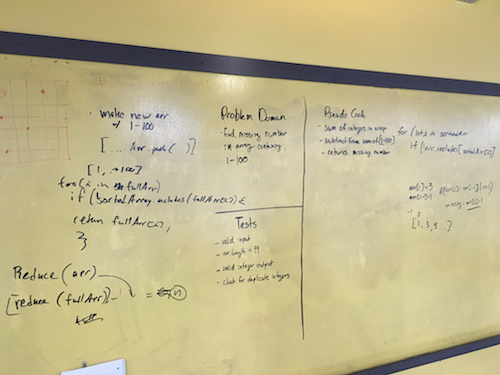 - make new arr
1-100
[... Arr.push( )]
[1, →100]
for(i in fullArr)
if (!sortedArray.includes(fullArr[i]) {
return fullArr[i];
}
Reduce (arr)
[reduce (fullArr)] - = n
Problem Domain
- Find missing number in array containing
1-100
Tests
- valid input
- arr length = 99
- valid integer output
- check for duplicate integers
Pseudo Code
- sum of integers in array
- subtract from sum of (1-100)
- returns missing number
for (let i in sortedArr
if (!arr.includes(sortedArr[i]
arr[i]=3
[1, 3, 4, ..]